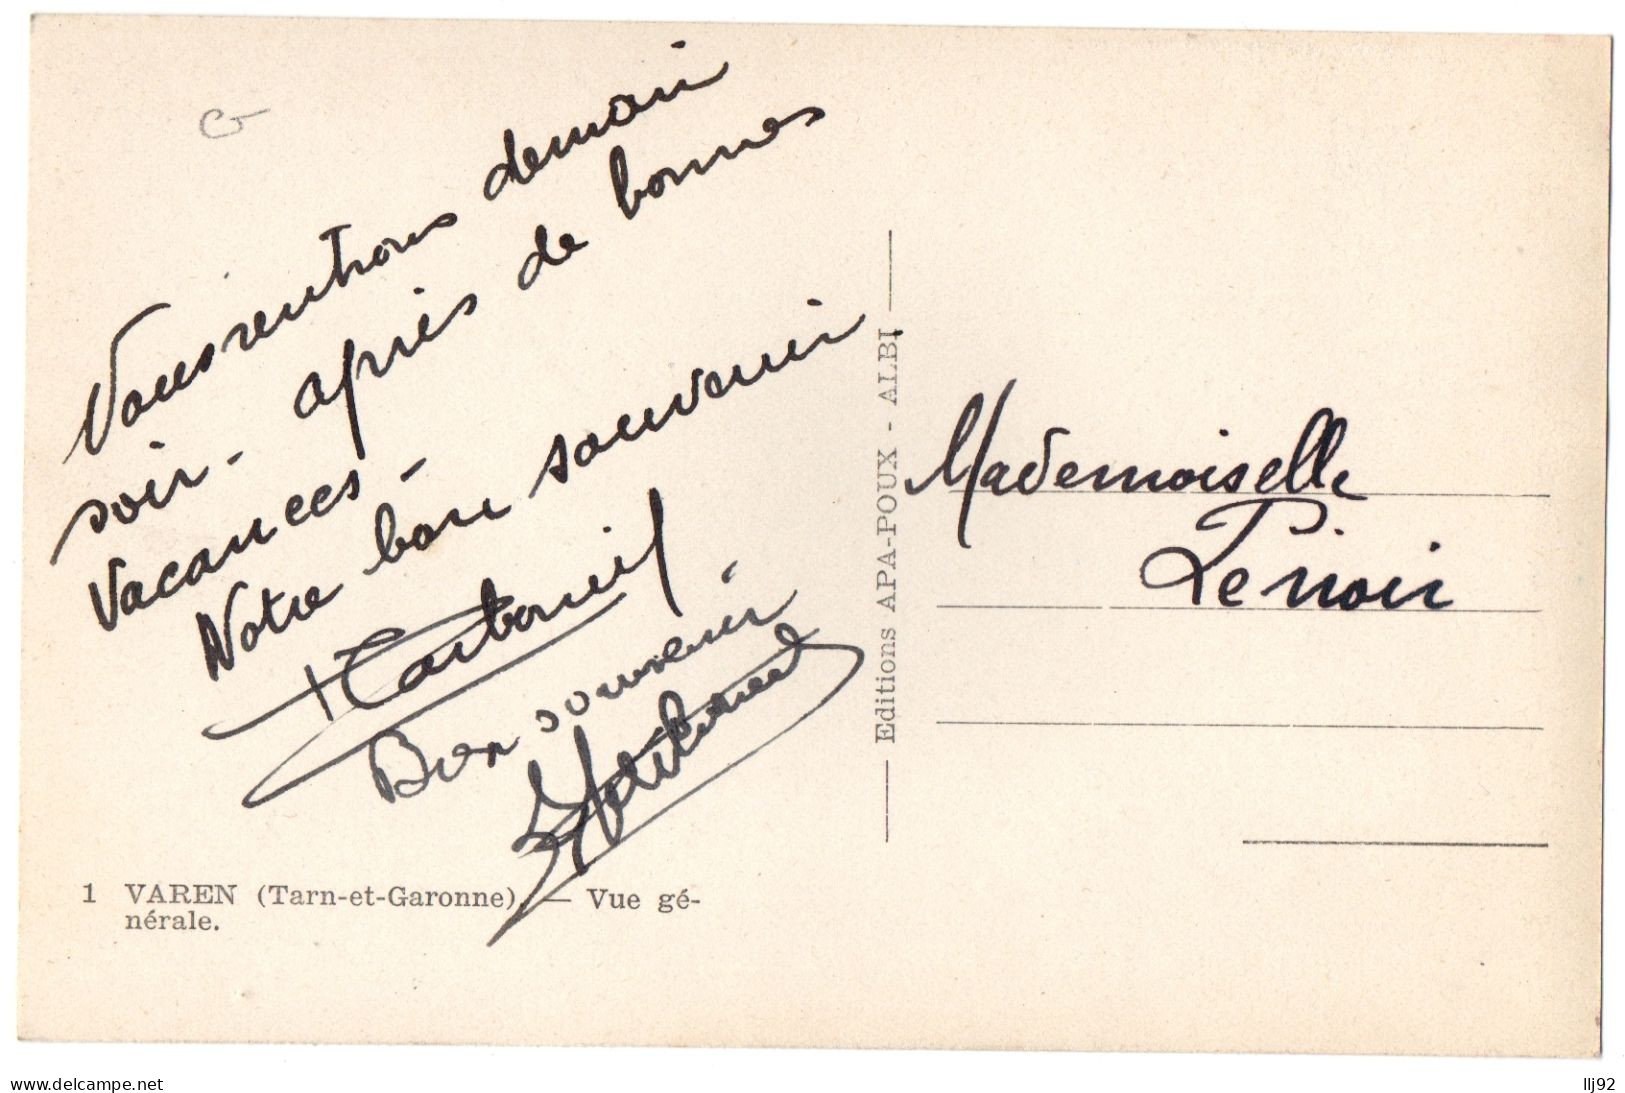 Nous rentrons demain
soir - après de bonnes
vacances -
Notre bon souvenir
Bon souvenir
1 VAREN (Tarn-et-Garonne). — Vue gé-
nérale.
Editions APA-POUX - ALBI
Mademoiselle
Lenoir
www.delcampe.net
llj92